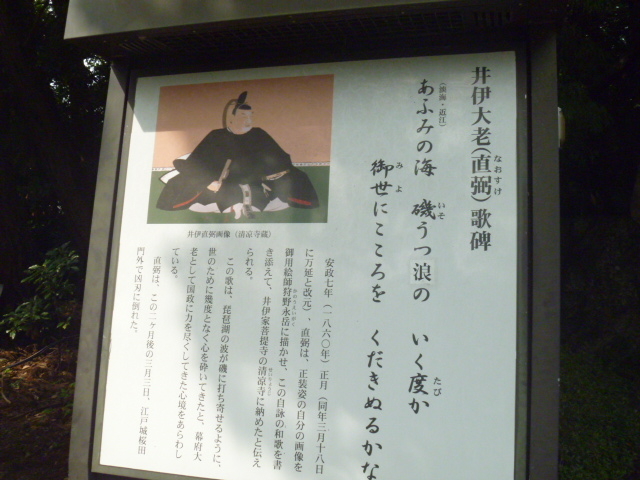 井伊大老(直弼)歌碑
なおすけ
(淡海・近江)
あふみの海 磯うつ浪の いく度か
いそ
たび
御世にこころを くだきぬるかな
みよ
井伊直弼画像(清凉寺蔵)
安政七年(一八六〇年)正月(同年三月十八日
に万延と改元)、直弼は、正装姿の自分の画像を
御用絵師狩野永岳に描かせ、この自詠の和歌を書
かのうえいがく
き添えて、井伊家菩提寺の清凉寺に納めたと伝え
せいりょうじ
られる。
この歌は、琵琶湖の波が磯に打ち寄せるように、
世のために幾度となく心を砕いてきたと、幕府大
老として国政に力を尽くしてきた心境をあらわし
ている。
直弼は、この二ヶ月後の三月三日、江戸城桜田
門外で凶刃に倒れた。